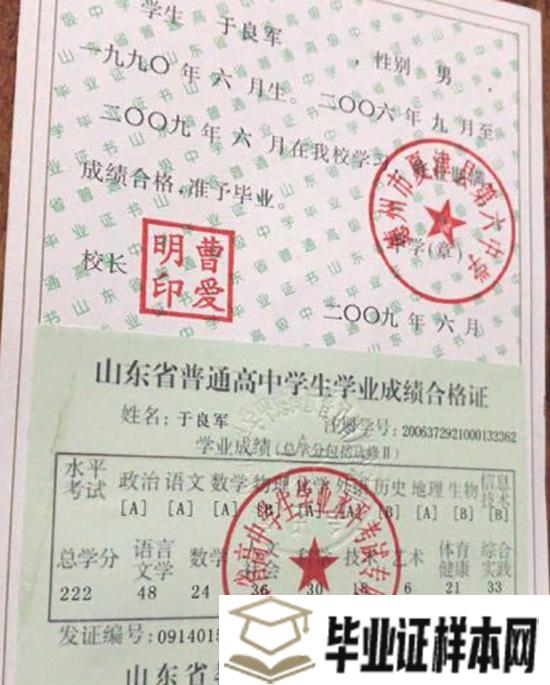 学生 于良军 ,性别 男,
一九九〇年 六 月生。二〇〇六年 九 月至
二〇〇九年 六 月在我校学习
成绩合格,准予毕业。
德州市夏津县第六中学
中学(章)
校长
曹爱明印
二〇〇九 年 六 月
山东省普通高中学生学业成绩合格证
姓名:于良军 注册学号:2006372921000132362
学业成绩(总学分包括选修Ⅱ)
水平考试 政治 语文 数学 物理 化学 外语 历史 地理 生物 信息技术
[A] [A] [A] [B] [A] [B] [A] [B] [B]
总学分 语言文学 数学 技术 艺术 体育健康 综合实践
222 48 24 36 30 18 6 21 33
发证编号:0914015
山东省
毕业证样本网